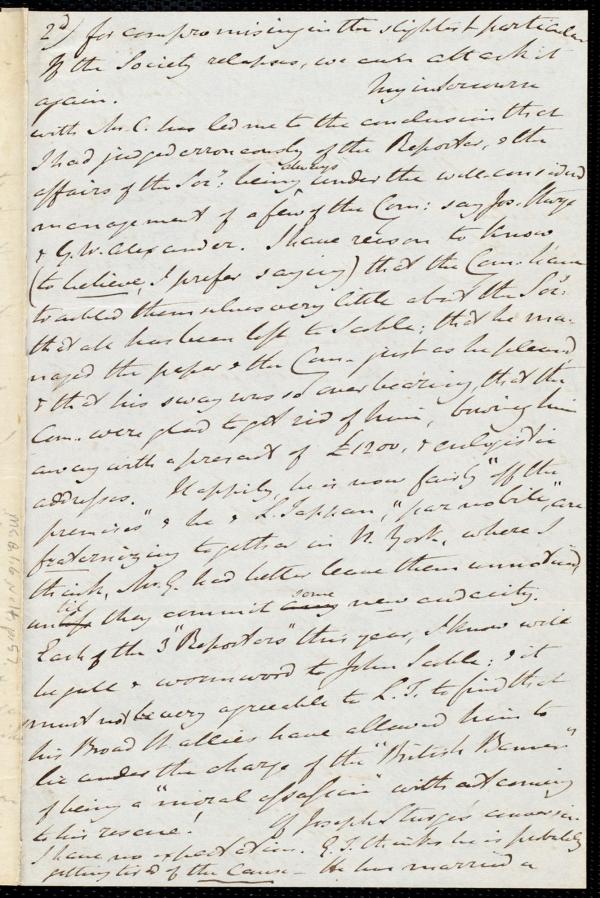 2d) for compromising in the slightest particular
If the Society relapses, we can attack it
again. My intercourse
with Mr. C. has led me to the conclusion that
I had judged erroneously of the Reporter, & the
affairs of the Socy: being always under the well-considered
management of a few of the Com: say Jos. Sturge
& G. W. Alexander. I have reason to know
(to believe, I prefer saying) that the Com. have
troubled themselves very little about the Socy:
that all has been left to Scoble; that he ma-
naged the paper & the Com. just as he pleased
& that his sway was so overbearing, that the
Com. were glad to get rid of him, buying him
away with a present of £1200, & eulogistic
addresses. Happily, he is now fairly "off the
premises" & he & L. Tappan, "par nobile", are
fraternizing together in N. York, where I
think, Mr. G. had better leave them unnoticed,
until they commit some new audacity.
Each of the 3 "Reporters" this year, I know will
be gall & wormwood to John Scoble; & it
must not be very agreeable to L. T. to find that
his Broad St allies have allowed him to
lie under the charge of the "British Banner"
of being a "moral assassin" without coming
to his rescue! Of Joseph Sturge's conversion
I have no expectation. G. T. thinks he is probably
getting tired of the Cause - He has married a